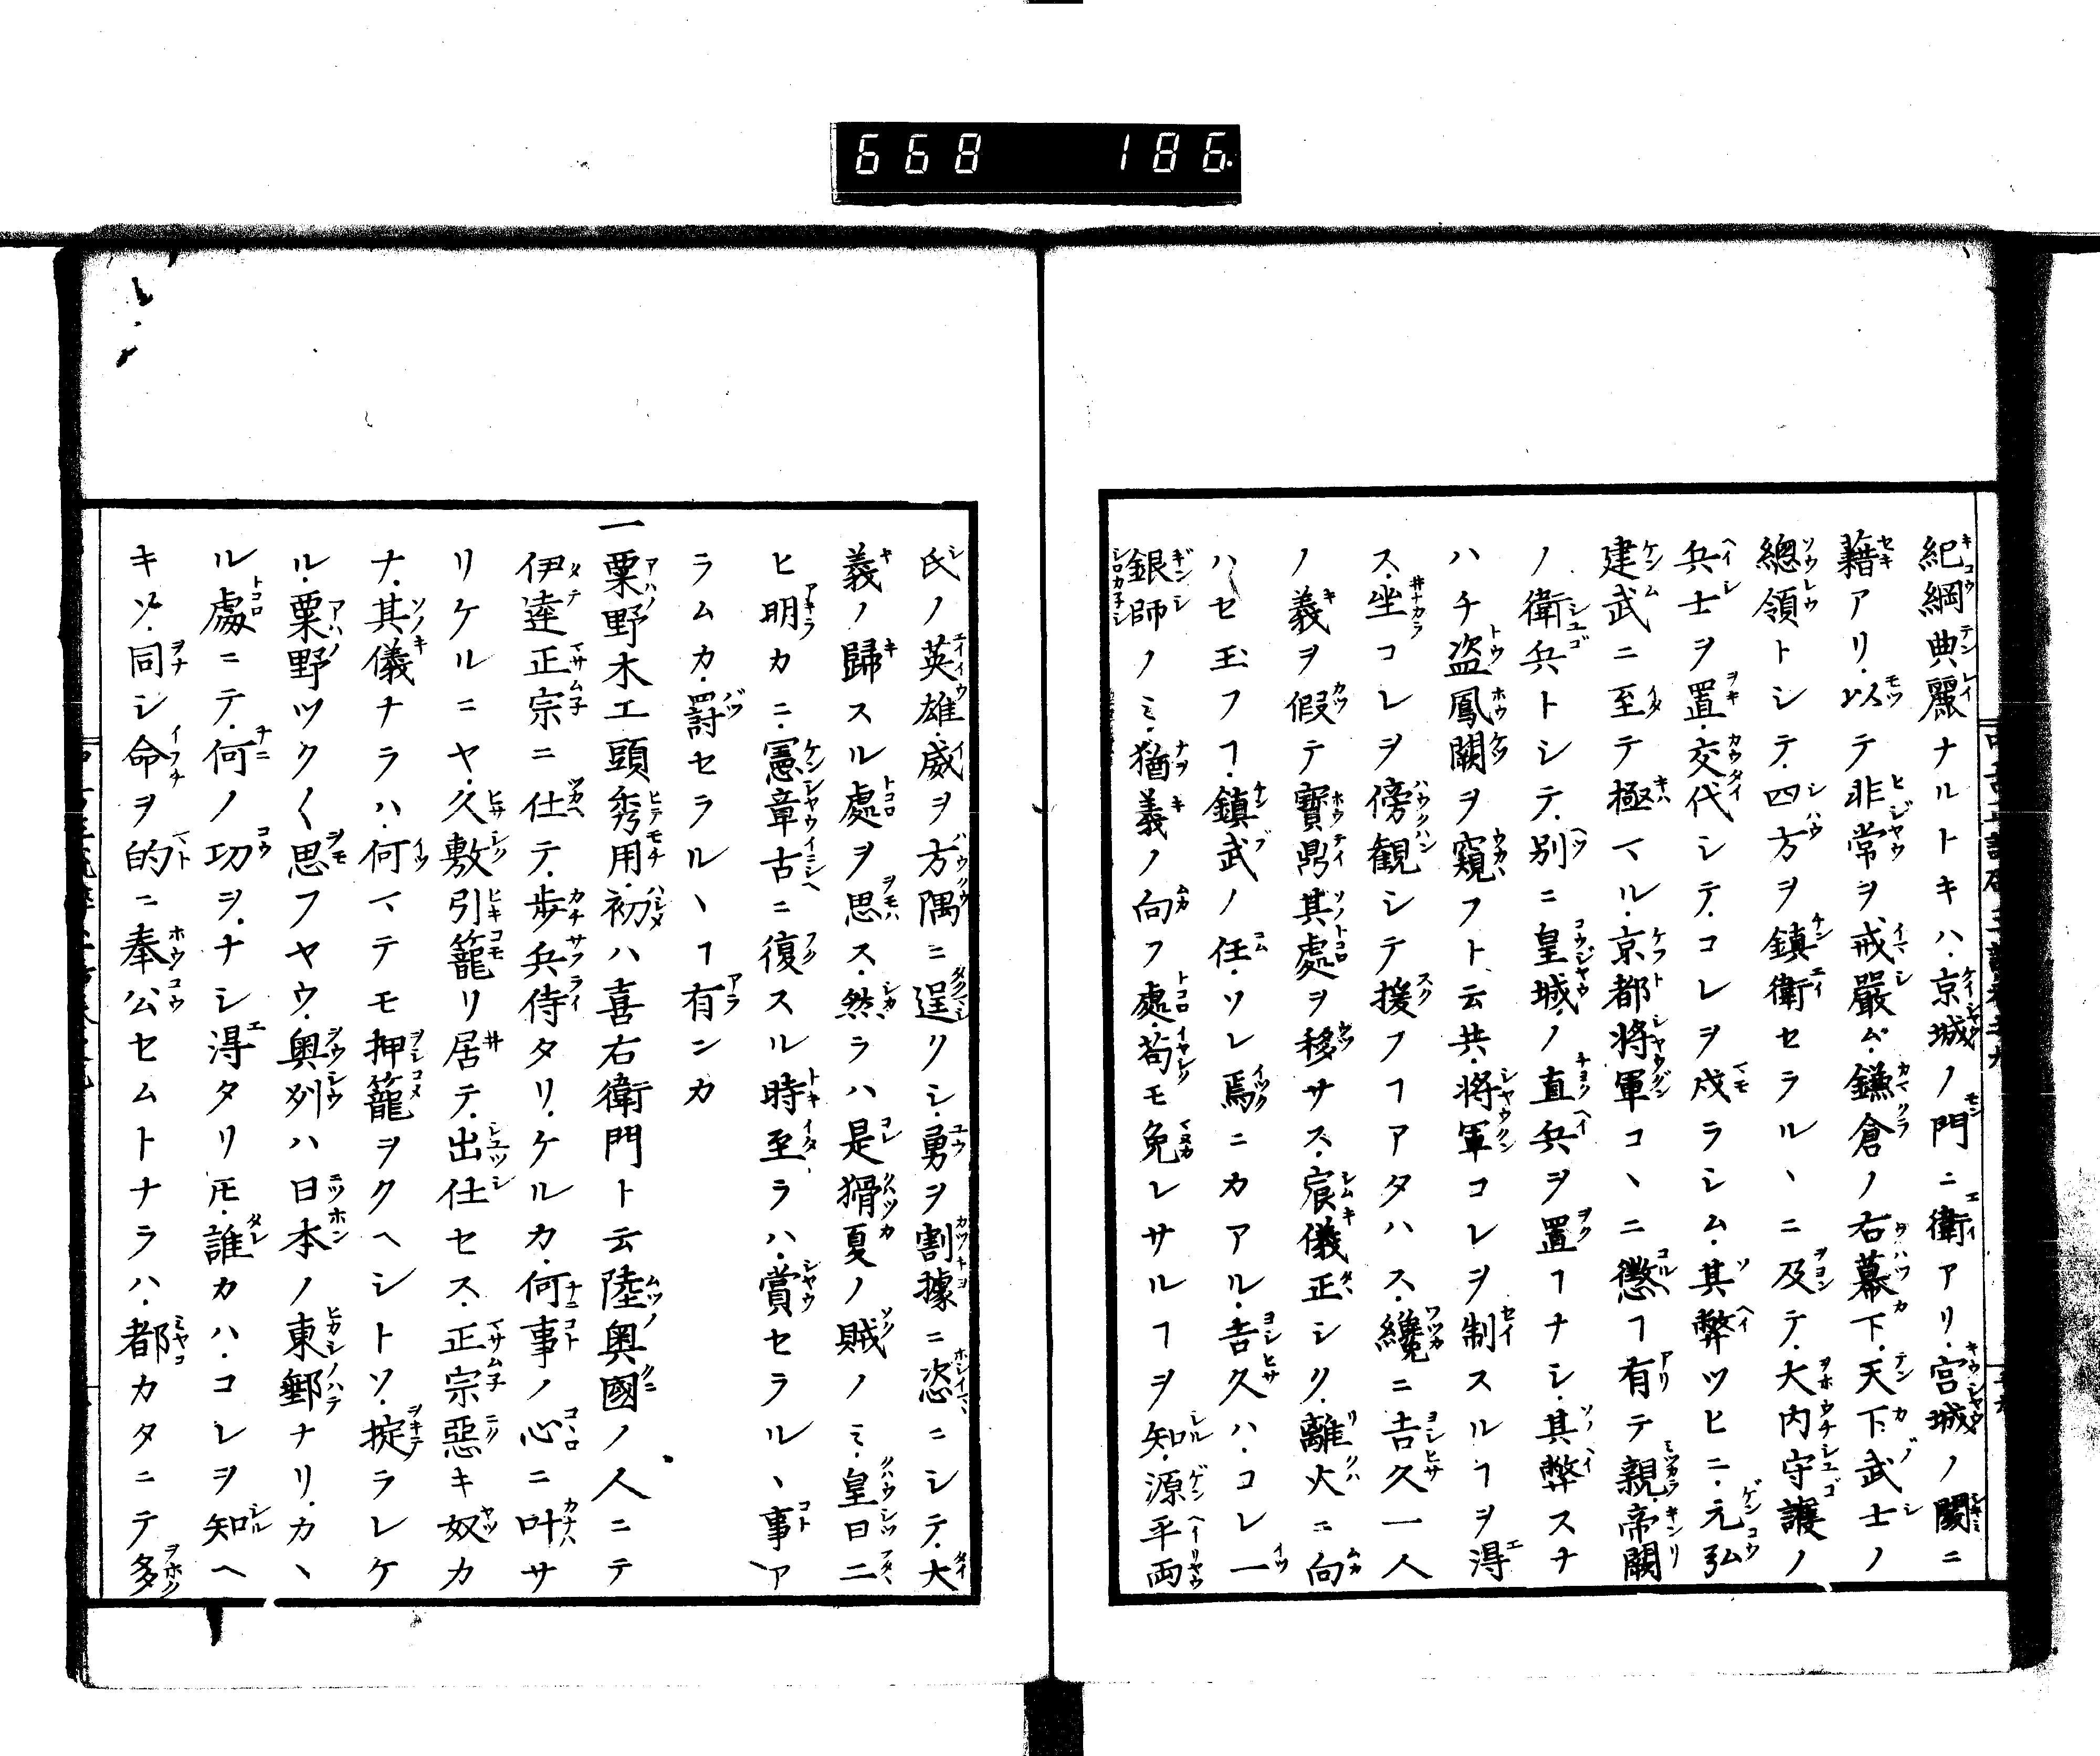 668 186
紀綱典麗ナルトキハ.京城ノ門ニ衛アリ.宮城ノ閾ニ
藉アリ.以テ非常ヲ戒嚴ム.鎌倉ノ右幕下.天下武士ノ
總領トシテ.四方ヲ鎮衛セラルヽニ及テ.大内守護ノ
兵士ヲ置.交代シテ.コレヲ戍ラシム.其弊ツヒニ.元弘
建武ニ至テ極マル.京都將軍コヽニ懲ヿ有テ親.帝闕
ノ衛兵トシテ.別ニ皇城ノ直兵ヲ置ヿナシ.其弊スナ
ハチ盗鳳闕ヲ窺フト云共.將軍コレヲ制スルヿヲ得
ス.坐コレヲ傍観シテ援フヿアタハス.纔ニ吉久一人
ノ義ヲ假テ寶鼎其處ヲ移サス.宸儀正シク.離火ニ向
ハセ玉フヿ.鎮武ノ任.ソレ焉ニカアル.吉久ハ.コレ一
銀師ノミ.猶義ノ向フ處.苟モ免レサルヿヲ知.源平両
氏ノ英雄.威ヲ方隅ニ逞リシ.勇ヲ割據ニ恣ニシテ.大
義ノ歸スル處ヲ思ス.然ラハ是猾夏ノ賊ノミ.皇曰二
ヒ明カニ.憲章古ニ復スル時至ラハ.賞セラルヽ事ア
ラムカ.罸セラルヽヿ有ンカ
一粟野木工頭秀用.初ハ喜右衛門ト云陸奥國ノ人ニテ
伊逹正宗ニ仕テ.歩兵侍タリ.ケルカ.何事ノ心ニ叶サ
リケルニヤ.久敷引籠リ居テ.出仕セス.正宗惡キ奴カ
ナ.其儀ナラハ.何マテモ押籠ヲクヘシトソ.掟ラレケ
ル.粟野ツク〱思フヤウ.奥刕ハ日本ノ東郵ナリ.カヽ
ル處ニテ.何ノ功ヲ.ナシ得タリ𪜈.誰カハ.コレヲ知ヘ
キソ.同シ命ヲ的ニ奉公セムトナラハ.都カタニテ多